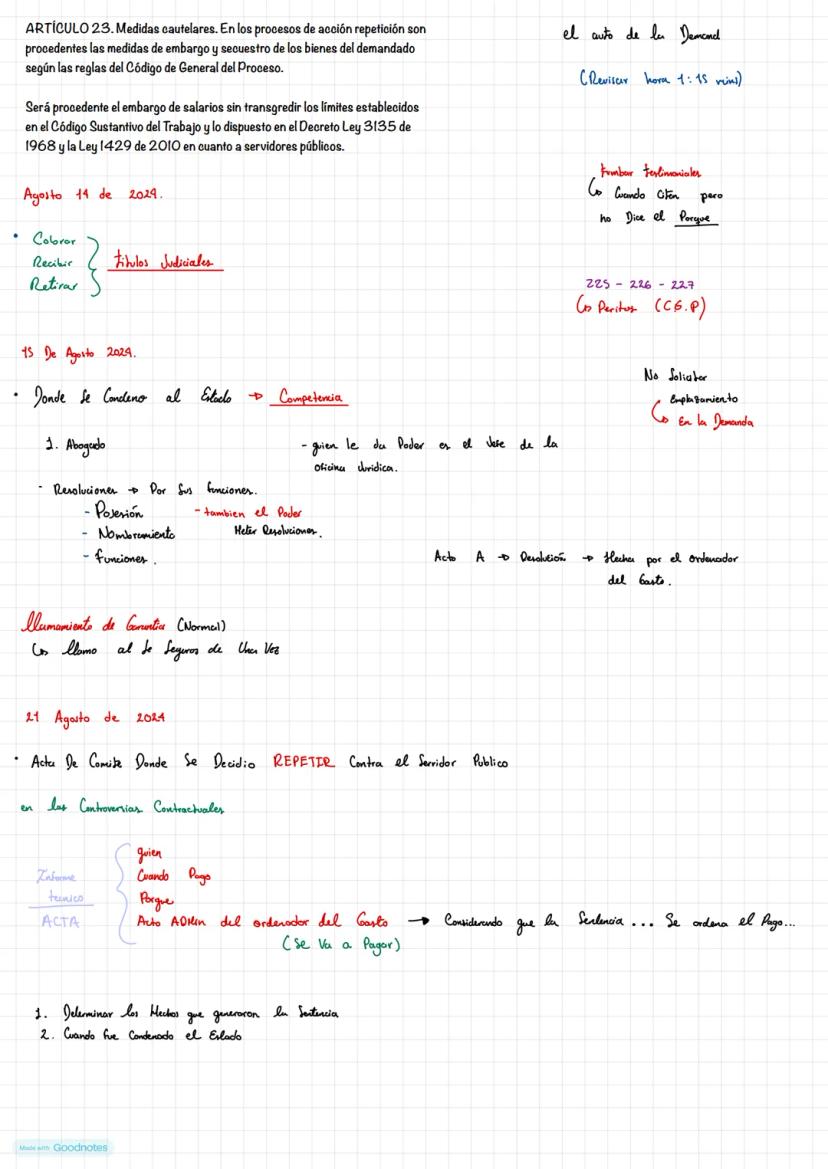 ARTÍCULO 23. Medidas cautelares. En los procesos de acción repetición son
procedentes las medidas de embargo y secuestro de los bienes del demandado
según las reglas del Código de General del Proceso.
Será procedente el embargo de salarios sin transgredir los límites establecidos
en el Código Sustantivo del Trabajo y lo dispuesto en el Decreto Ley 3135 de
1968 y la Ley 1429 de 2010 en cuanto a servidores públicos.
el auto de la Demand
(Revisar hora 1:15 mins)
tumbar testimoniales
↳ Cuando Citen pero
no Dice el Porque
Agosto 14 de 2024.
• Cobrar
Recibir
Retirar
titulos Judiciales
225 - 226 - 227
↳ Peritos (C.G.P)
15 De Agosto 2024.
• Donde Se Condeno al Estado → Competencia
No Solicitar
Emplazamiento
↳ En la Demanda
1. Abogado
- quien le da Poder es el Jefe de la
oficina Juridica.
- Resoluciones → Por Sus funciones.
- Posesión
- tambien el Poder
- Nombramiento
Meter Resoluciones.
- funciones.
Acto A → Resolución → Hecha por el ordenador
del Gasto.
llamamiento de Garantia (Normal)
↳ llamo al de Seguros de Una Vez
21 Agosto de 2024
• Acta De Comite Donde Se Decidio REPETIR Contra el Servidor Publico
en las Controversias Contractuales
Informe
tecnico
ACTA
quien
Cuando Pago
Porque
Acto ADMin del ordenador del Gasto → Considerando que la Sentencia ... Se ordena el Pago...
(Se Va a Pagar)
1. Determinar los Hechos que generaron la Sentencia
2. Cuando fue Condenado el Estado
Made with Goodnotes